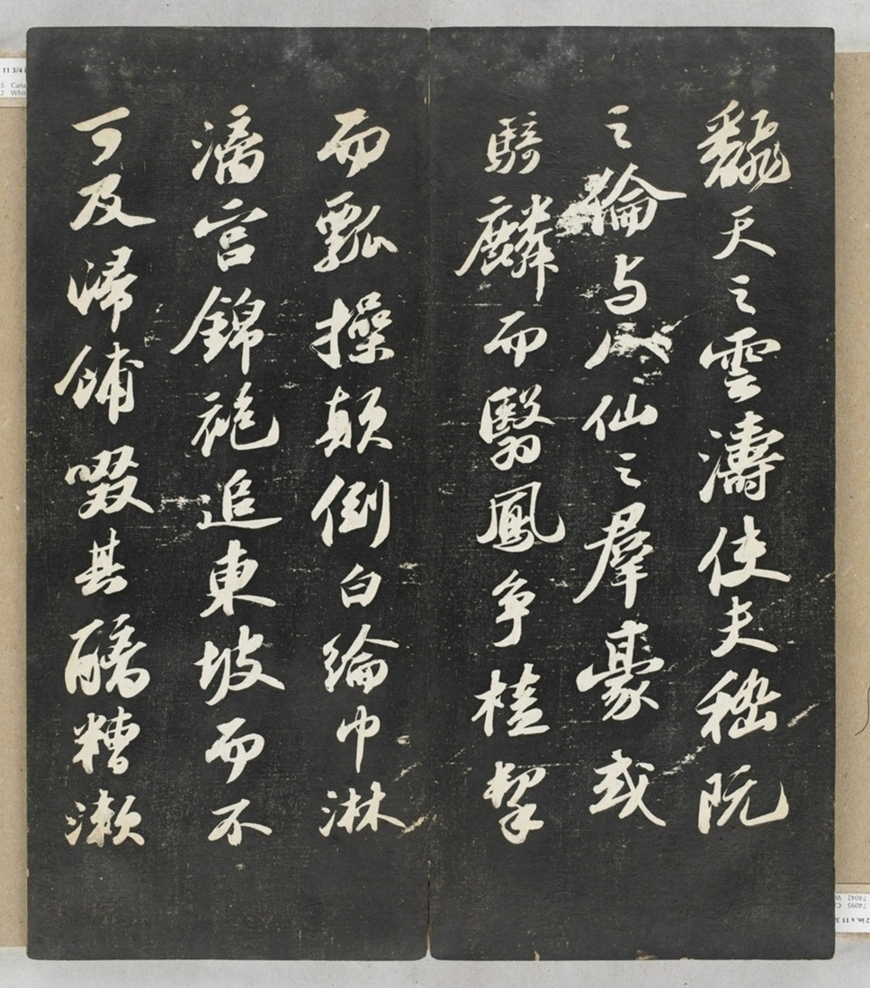 飜天之雲濤使夫嵇阮
之倫与八仙之羣豪或
騎麟而翳鳳争榼挈
而瓢操顛倒白綸巾淋
漓宫錦袍追東坡而不
可及歸餔啜其醨糟漱